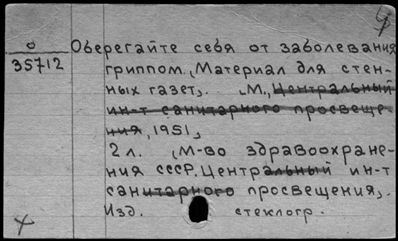 Ч
О Оберегайте себя от заболевания
35712 гриппом. (Материал для стен-
ных газет). М., Центральный
ин-т санитарного просвеще-
ния, 1951.
2 л. (М-во здравоохране-
ния СССР, Центральный ин-т
санитарного просвещения).
Изд. стеклогр.